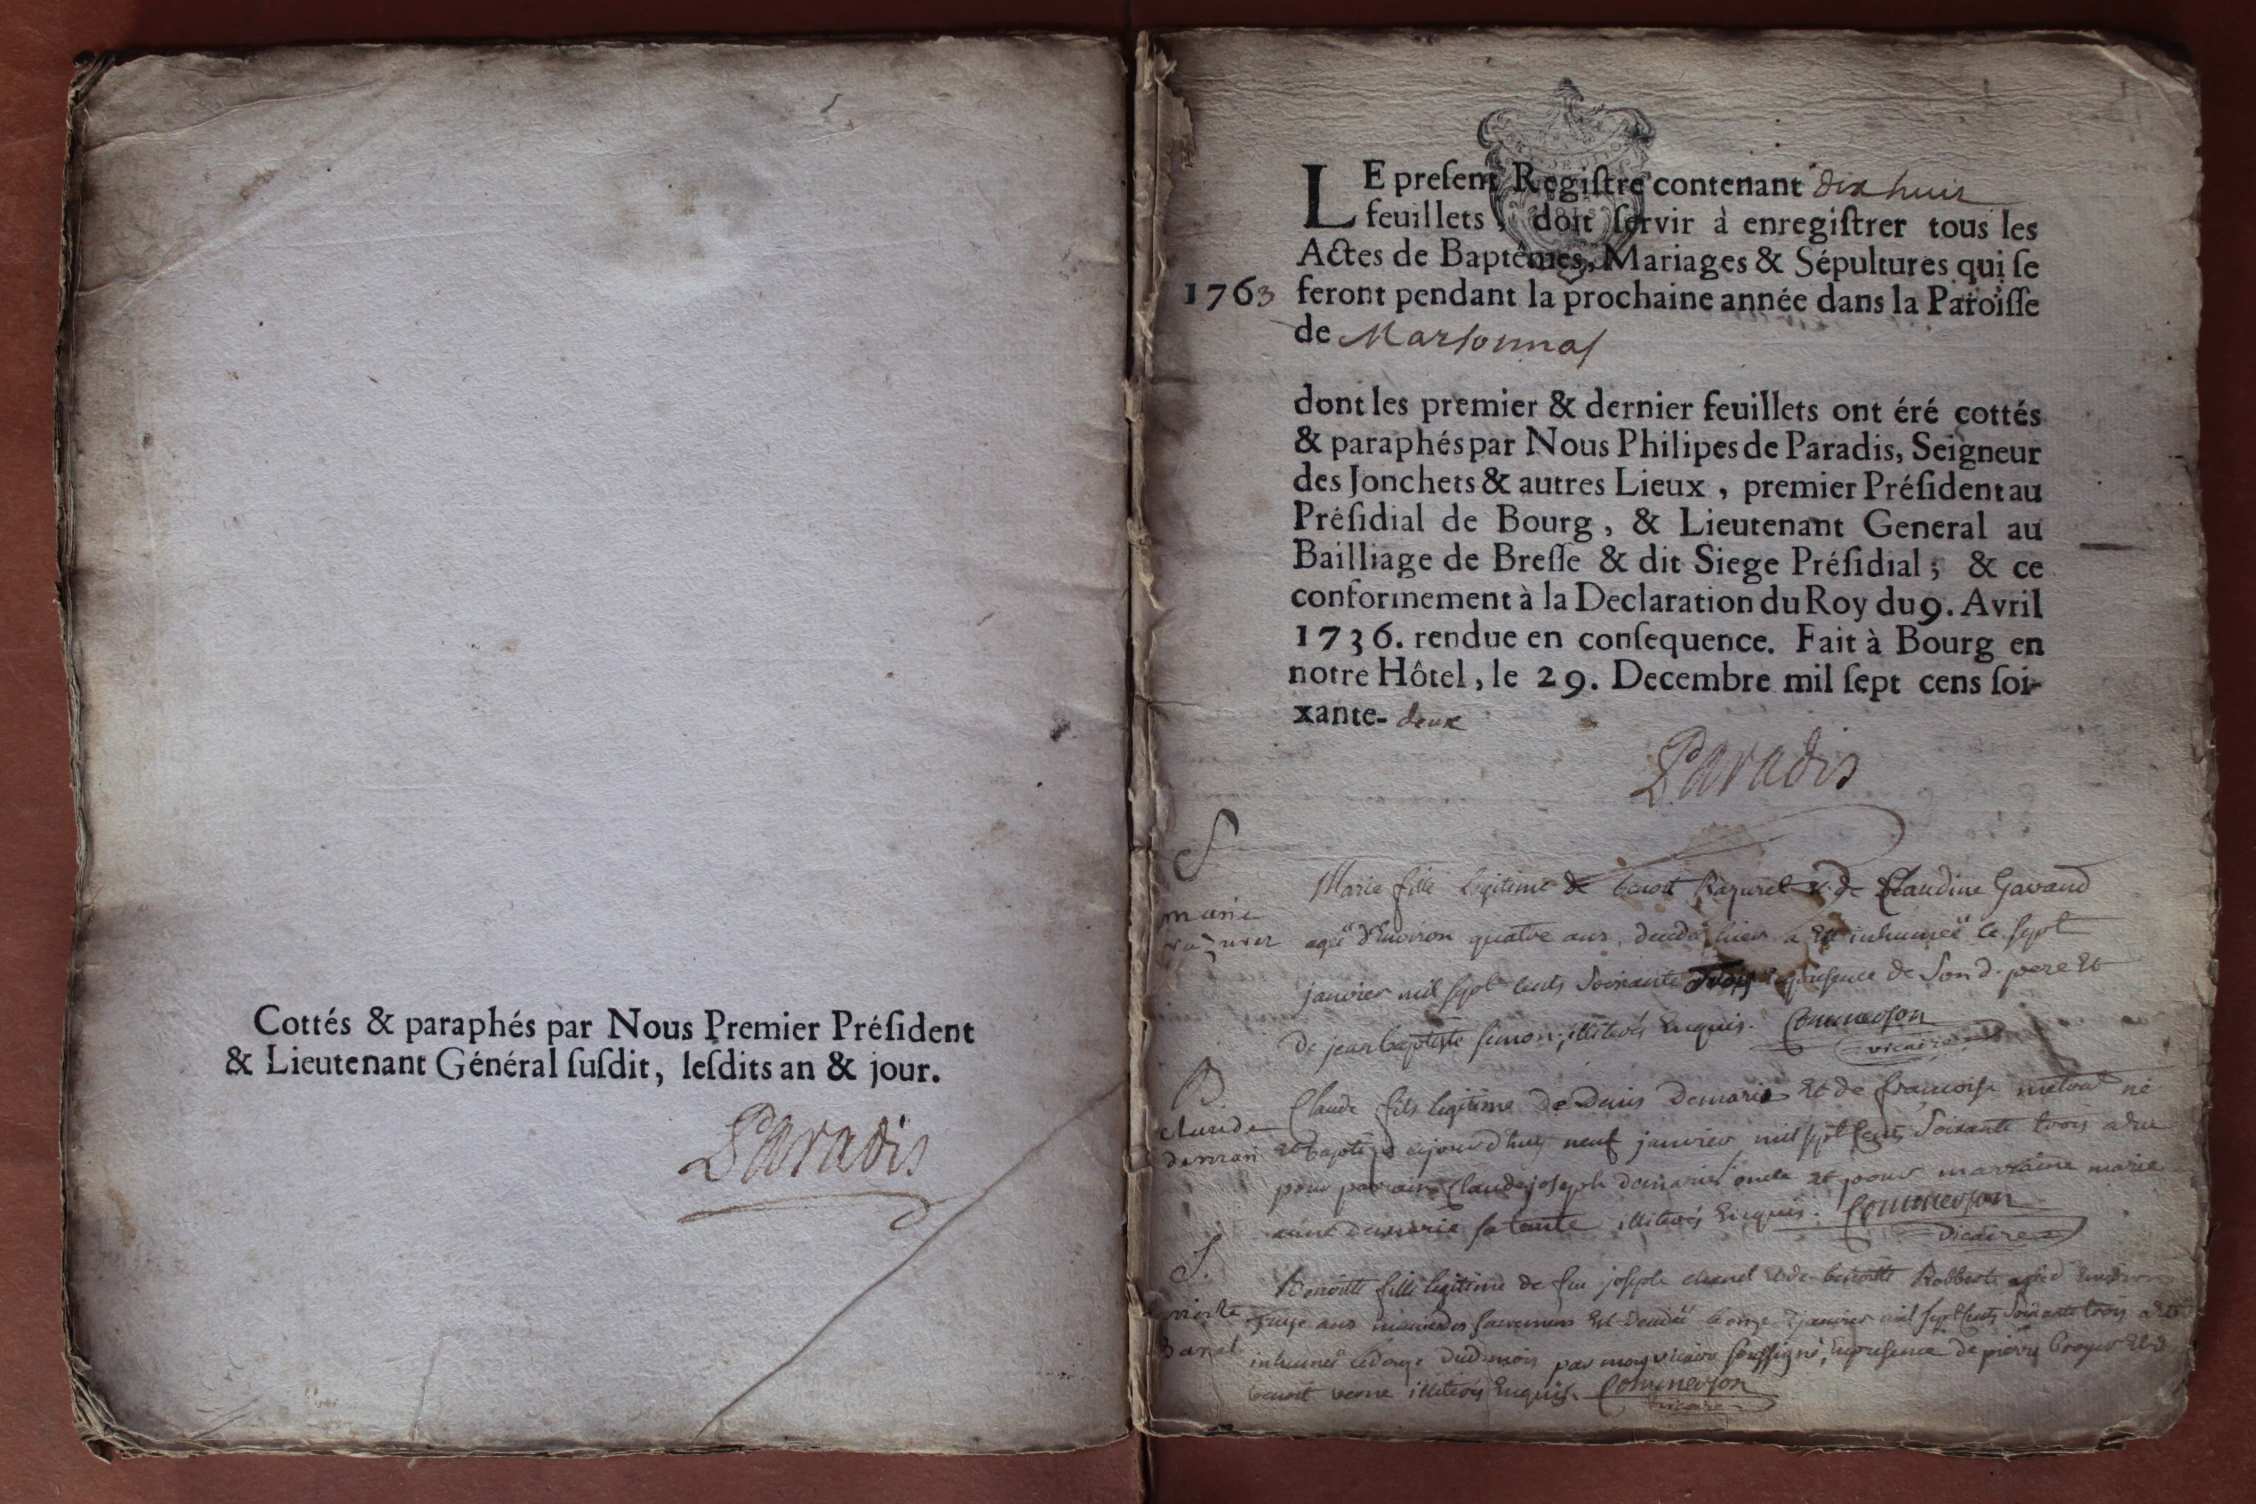 Cottés & paraphés par Nous Premier Préſident
& Lieutenant Général ſuſdit, leſdits an & jour.
Paradis
LE preſent Regiſtre contenant dix huit
feuillets, doit ſervir à enregiſtrer tous les
Actes de Baptêmes, Mariages & Sépultures qui ſe
1763 feront pendant la prochaine année dans la Paroiſſe
de Marsonnas
dont les premier & dernier feuillets ont éré cottés
& paraphés par Nous Philipes de Paradis, Seigneur
des Jonchets & autres Lieux, premier Préſident au
Préſidial de Bourg, & Lieutenant General au
Bailliage de Breſſe & dit Siege Préſidial; & ce
conformement à la Declaration du Roy du 9. Avril
1736. rendue en conſequence. Fait à Bourg en
notre Hôtel, le 29. Decembre mil ſept cens ſoi-
xante- deux
Paradis
S
marie
razurel
Marie fille legitime de benoit Razurel & de Claudine Gavand
ageé d'Environ quatre ans, hier a Eté inhumeé le sept
janvier mil sept cents Soixante trois presence de Son d. pere Et
De jean baptiste simon, illiterés Enquis. Commerson
vicaire
B
claude
demari
Claude fils legitime De Denis Demarie Et de francoise né
Et baptisé aujourdhuy neuf janvier mil sept cents Soixante trois a Eu
pour parain Claude joseph demarie oncle Et pour marraine marie
demarie sa tante illiterés Enquis. Commerson
vicaire
S.
Benoitte fille legitime de feu joseph chanel Et de benoitte Robbert ageé Environ
ans des sacremens Est le onze janvier mil sept cents Soixante trois
inhumeé le douze dud. mois par moy vicaire soussigné, En presence de pierre broyer Et de
benoit verne illiterés Enquis. Commerson
vicaire